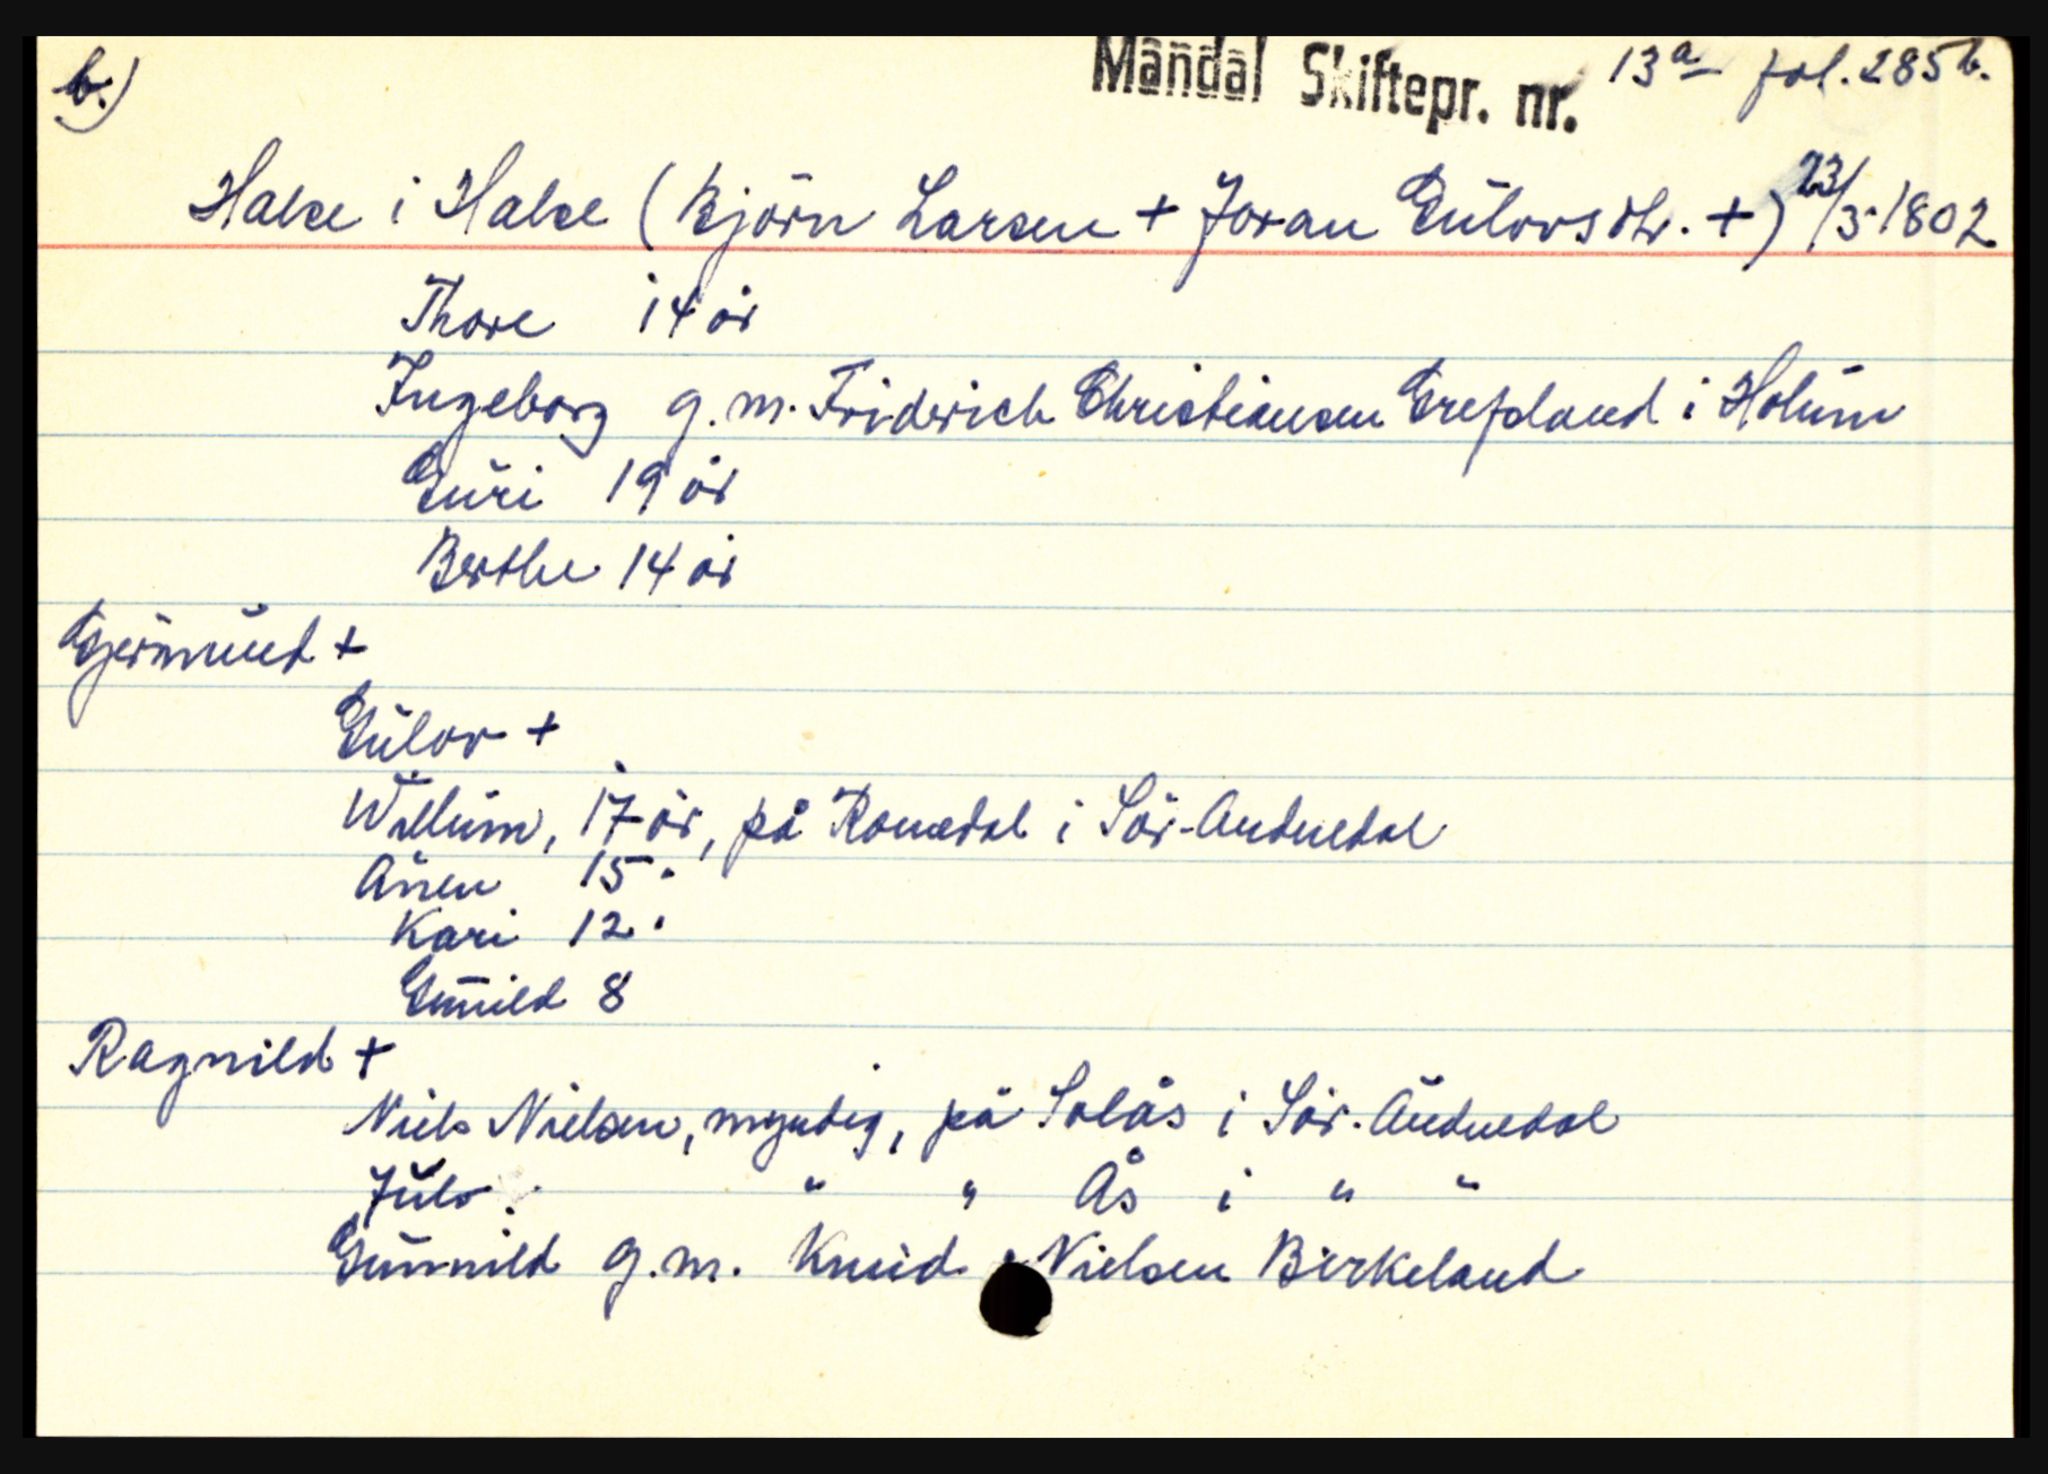 b.) Mandal Skiftepr. nr. 13a fol. 285b.
Halse i Halse (Björn Larsen + Joran Gulovsdtr. +) 23/3-1802
Thore 14 år
Ingeborg g.m. Friderich Christiansen Grefsland i Holum
Guri 19 år
Berthe 14 år
Gjermund +
Gulov +
Willum, 17 år, på Romedal i Sör-Audnedal
Ånen 15 "
Kari 12 "
Gunild 8
Ragnild +
Niels Nielsen, myndig, på Solås i Sör-Audnedal
Juls " " Ås i " "
Gunnild g.m. Knud Nielsen Birkeland